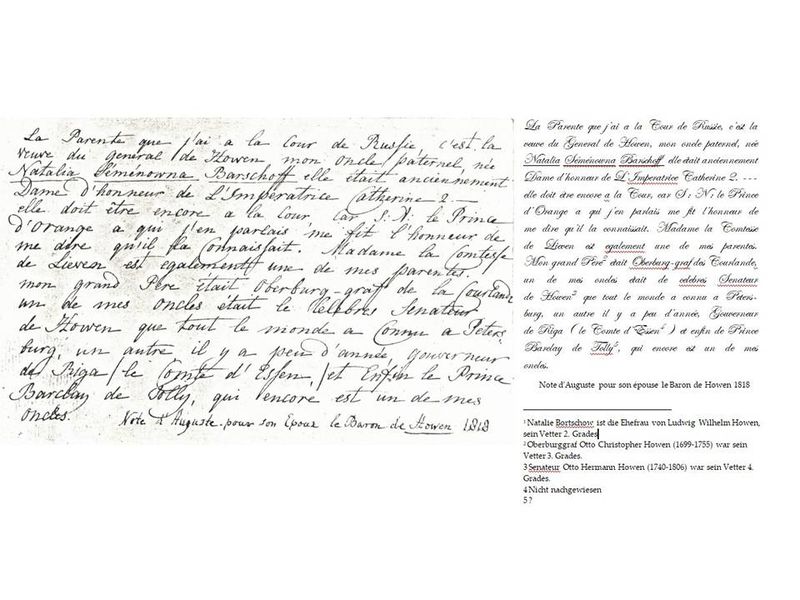 La Parente que j'ai a la Cour de Russie c'est la
veuve du général de Howen mon oncle paternel, née
Natalia Séminówna Barschoff elle était anciennément
Dame d'honneur de L'Impératrice Catherine 2 —
elle doit être encore a la Cour car S: N: le Prince
d'Orange a qui j'en parlais me fit l'honneur de
me dire qu'il la connaissait. Madame la Comtesse
de Lieven est egalement une de mes parentes.
mon grand Père était Oberburg-graf de la Courlande
un de mes oncles était le celèbres Senateur
de Howen que tout le monde a connu a Peters-
burg, un autre il y a peu d'année, gouverneur
de Riga /le Comte d'Essen/ et Enfin le Prince
Barclay de Tolly, qui encore est un de mes
oncles.
Note d'Auguste pour son Epoux le Baron de Howen 1818
La Parente que j'ai a la Cour de Russie, c'est la
veuve du General de Howen, mon onde paternel, née
Natalia Séminówna Barschoff elle était anciennement
Dame d'honneur de L'Imperatrice Catherine 2. ---
elle doit être encore a la Cour, car S: N: le Prince
d'Orange a qui j'en parlais me fit l'honneur de
me dire qu'il la connaissait. Madame la Comtesse
de Lieven est egalement une de mes parentes.
Mon grand Père2 était Oberburg-graf des Courlande,
un de mes oncles était de celebres Senateur
de Howen3 que tout le monde a connu a Peters-
burg, un autre il y a peu d'année, Gouverneur
de Riga ( le Comte d'Essen4 ) et enfin de Prince
Barclay de Tolly5, qui encore est un de mes
oncles.
Note d'Auguste pour son épouse le Baron de Howen 1818
1 Natalie Bortschow ist die Ehefrau von Ludwig Wilhelm Howen,
sein Vetter 2. Grades
2 Oberburggraf Otto Christopher Howen (1699-1755) war sein
Vetter 3. Grades.
3 Senateur Otto Hermann Howen (1740-1806) war sein Vetter 4.
Grades.
4 Nicht nachgewiesen
5 ?